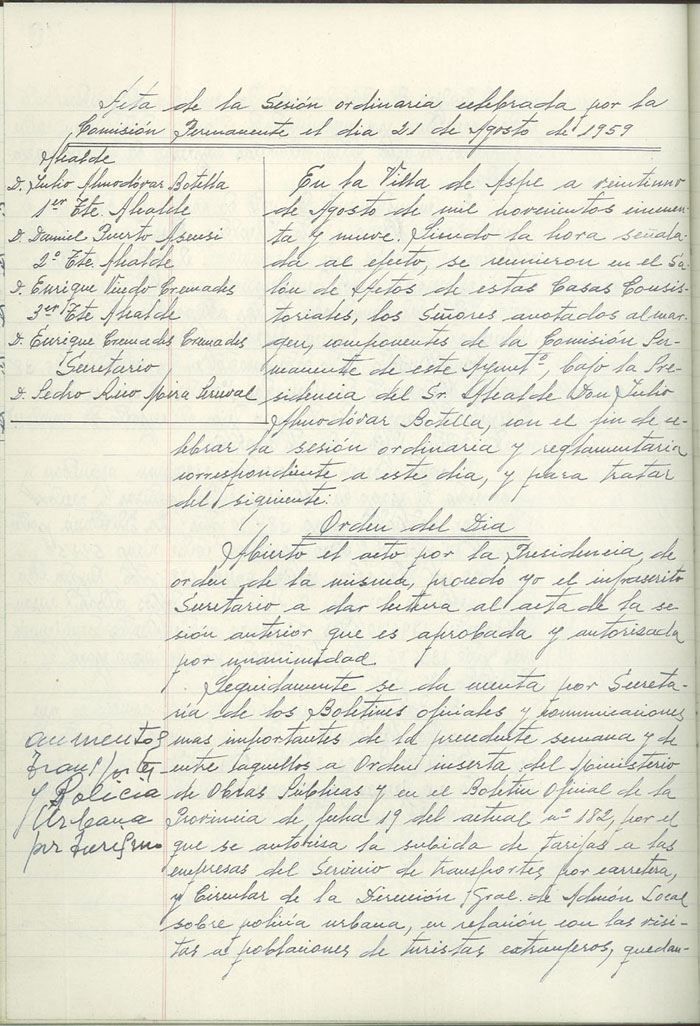 Acta de la Sesión ordinaria celebrada por la
Comisión Permanente el dia 21 de Agosto de 1959
Alcalde
D. Julio Almodóvar Botella
1er Tte. Alcalde
D. Daniel Puerto Asensi
2º Tte. Alcalde
D. Enrique Viedo Cremades
3er Tte Alcalde
D. Enrique Cremades Cremades
Secretario
D. Pedro Rico
En la Villa de Aspe a veintiuno
de Agosto de mil novecientos cincuen-
ta y nueve. Siendo la hora señala-
da al efecto, se reunieron en el Sa-
lón de Actos de estas Casas Consis-
toriales, los Señores anotados al mar-
gen, componentes de la Comisión Per-
manente de este Ayuntº, bajo la Pre-
sidencia del Sr. Alcalde Don Julio
Almodóvar Botella, con el fin de ce-
lebrar la sesión ordinaria y reglamentaria
correspondiente a este dia, y para tratar
del siguiente:
Orden del Dia
Abierto el acto por la Presidencia, de
orden de la misma, procedo yo el infrascrito
Secretario a dar lectura al acta de la se-
sión anterior que es aprobada y autorizada
por unanimidad.
Seguidamente se da cuenta por Secreta-
ría de los Boletines oficiales y comunicaciones
mas importantes de la precedente semana y de
entre aquellos a Orden inserta del Ministerio
de Obras Públicas y en el Boletin Oficial de la
Provincia de fecha 19 del actual nº 182, por el
que se autoriza la subida de tarifas a las
empresas del Servicio de transportes por carretera,
y Circular de la Dirección Gral. de Admón Local
sobre policía urbana, en relación con las visi-
tas a poblaciones de turistas extranjeros, quedan-
aumentos
transportes
y Policia
Urbana
por turismo